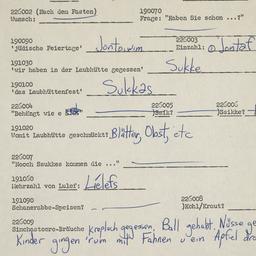 225002 (Nach dem Fasten) 190070
Wunsch: Frage: "Haben Sie schon ...?"
190090 225003
'jüdische Feiertage' Jontowwim Einzahl: Jontef
191030
'wir haben in der Laubhütte gegessen' Sukke
190100
'das Laubhüttenfest' Sukkes
225004 225005 225006
"BeHängt wie e )Seik? )Soikke?
191020
Womit Laubhütte geschmückt? Blätter, Obst, etc
225007
"Hooch Ssukkes kummen die ..."
191060
Mehrzahl von Lulef: Lielefs
191090 225008
)Kohl/Kraut?
225009
kreplach gegessen, Ball gehabt. Nüsse ge
Kinder gingen 'rum mit Fahnen u ein Apfel dra